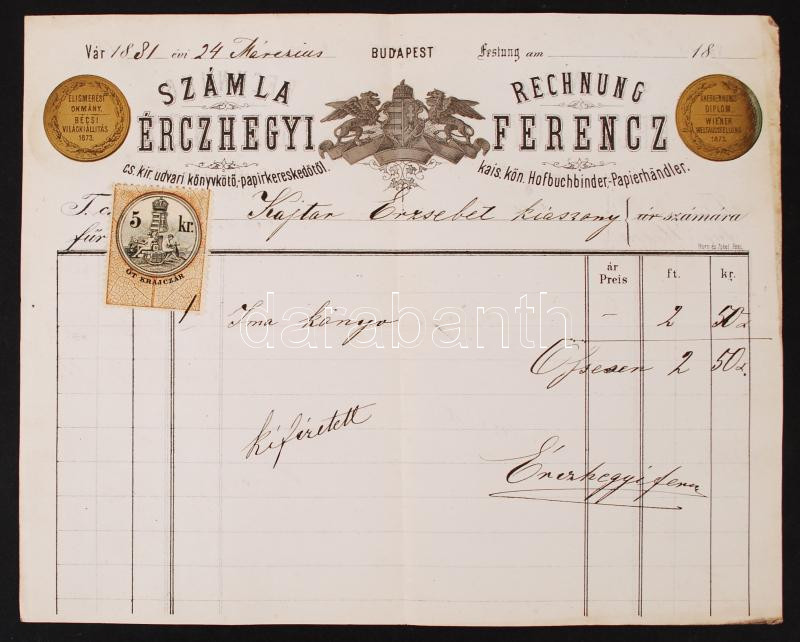 Vár 1881 évi 24 Márczius BUDAPEST Festung am 18
SZÁMLA RECHNUNG
ÉRCZHEGYI FERENCZ
cs. kir. udvari könyvkötő,-papirkereskedőtől. kais. kön. Hofbuchbinder,-Papierhändler.
ELISMERÉSI OKMÁNY.
BÉCSI
VILÁGKIÁLLITÁS
1873.
ANERKENNUNGS
DIPLOM.
WIENER
WELTAUSSTELLUNG
1873.
T. cz. Kajtar Erzsebet kiaszony úr számára
für
5 kr.
ÖT KRAJCZÁR
ár Preis ft. kr.
1 Ima könyv – 2 50
Öszesen 2 50
kifizetett
Érczhegyi ferencz
darabanth